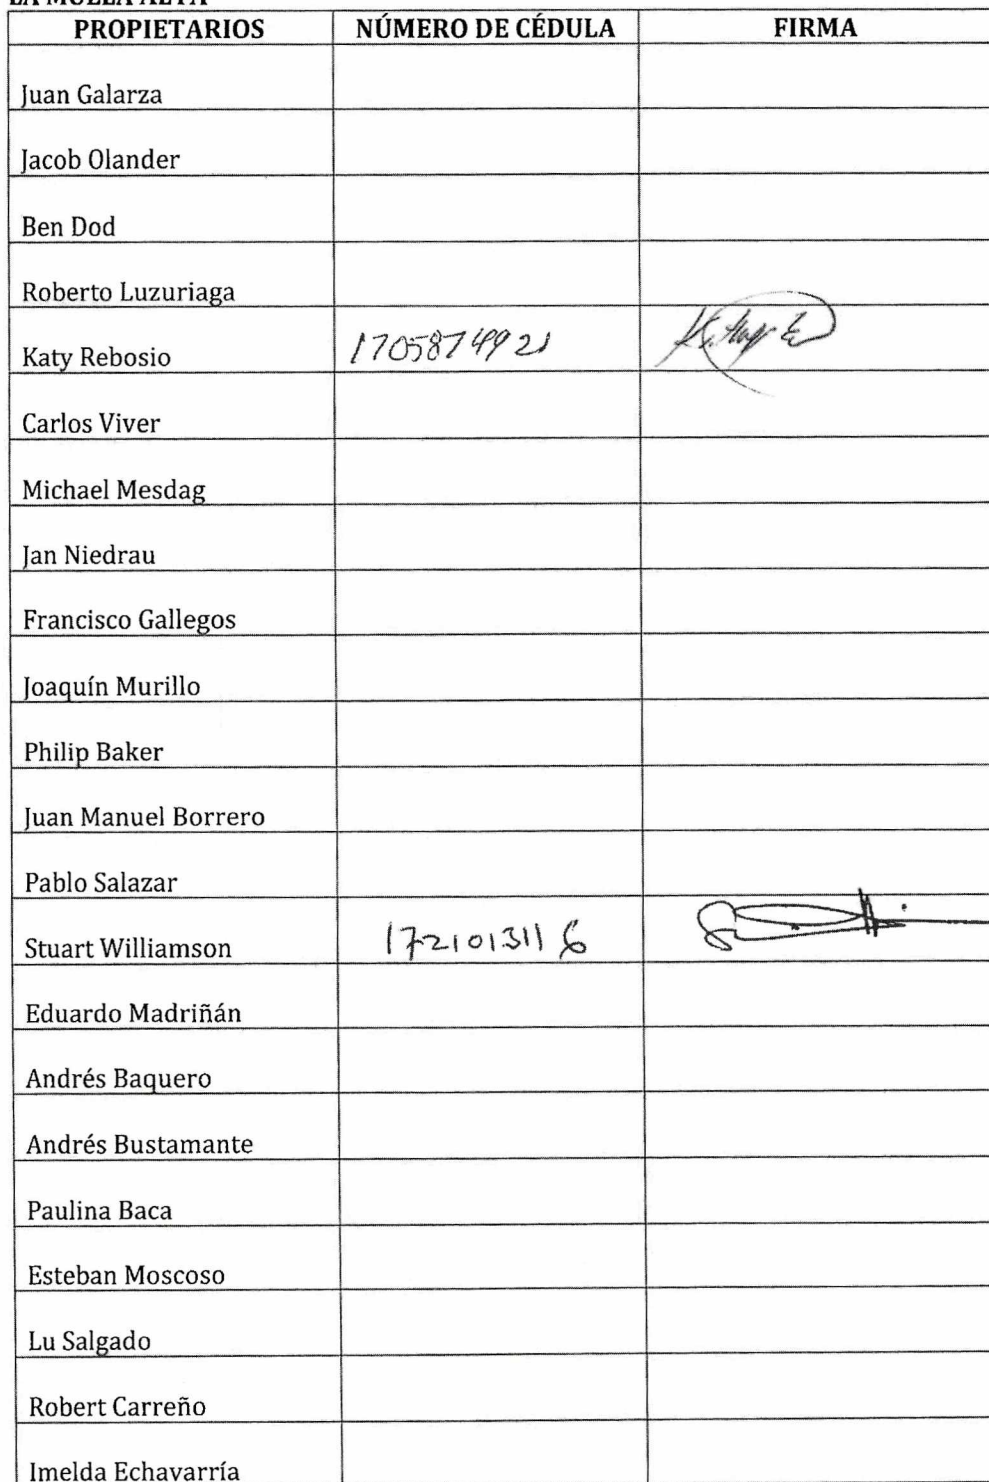 PROPIETARIOS NÚMERO DE CÉDULA FIRMA
Juan Galarza
Jacob Olander
Ben Dod
Roberto Luzuriaga
Katy Rebosio 1705874921
Carlos Viver
Michael Mesdag
Jan Niedrau
Francisco Gallegos
Joaquín Murillo
Philip Baker
Juan Manuel Borrero
Pablo Salazar
Stuart Williamson 1721013116
Eduardo Madriñán
Andrés Baquero
Andrés Bustamante
Paulina Baca
Esteban Moscoso
Lu Salgado
Robert Carreño
Imelda Echavarría